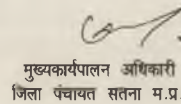 मुख्यकार्यपालन अधिकारी
जिला पंचायत सतना म.प्र.